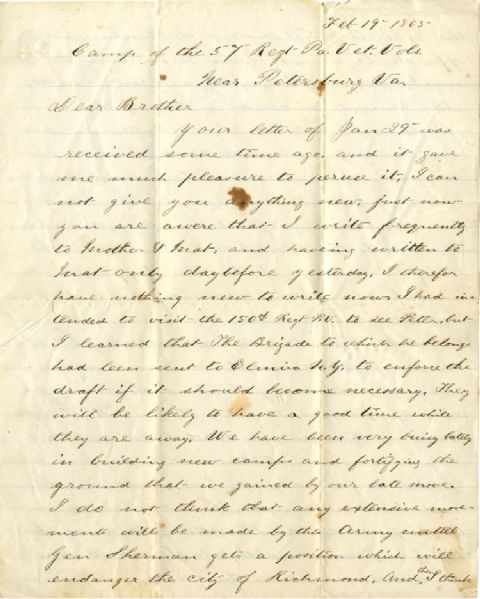 Feb 19th 1865
Camp of the 57 Regt Pa. Vet. Vols.
Near Petersburg Va.
Dear Brother
Your letter of Jan 29th was
received some time ago. and it gave
me much pleasure to peruse it, I can
not give you anything new, just now
you are awere that I write frequently
to Mother & Mat, and haveing written to
Mat only day before yesterday, I therefor
have nothing new to write now, I had in-
tended to visit the 150th Regt P.V. to see Peter, but
I learned that The Brigade to which he belongs
had been sent to Elmira N.Y. to enforce the
draft if it should become necessary, They
will be likely to have a good time while
they are away, We have been very busy lately
in building new camps and fortifying the
ground that we gained by our late move.
I do not think that any extensive move-
ments will be made by this Army untill
Gen Sherman gets a position which will
endanger the city of Richmond, And this I think